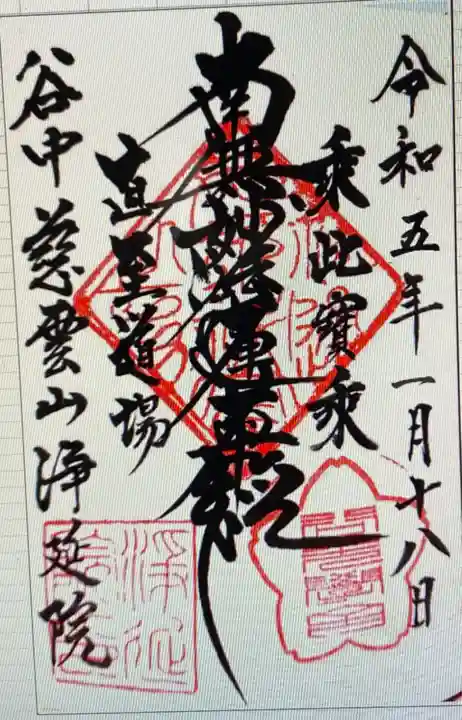 令和五年一月十八日
乗此寶乗
南無妙法蓮華経
直至道場
谷中慈雲山浄延院